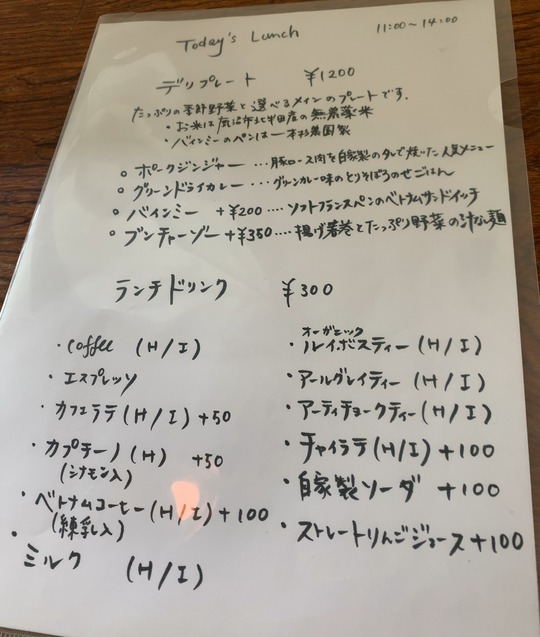 Today's Lunch 11:00~14:00
デリプレート ¥1200
たっぷりの季節野菜と選べるメインのプレートです.
・お米は 産の無農薬米
・バインミーのパンは一本杉農園製
○ ポークジンジャー …豚ロース肉を自家製のタレで焼いた人気メニュー
○ グリーンドライカレー …グリーンカレー味のとりそぼろのせごはん
○ バインミー +¥200 ‥‥ソフトフランスパンのベトナムサンドイッチ
○ ブンチャーゾー +¥350 ‥‥揚げ春巻とたっぷり野菜の汁なし麺
ランチドリンク ¥300
・coffee (H/I)
・エスプレッソ
・カフェラテ (H/I) +50
・カプチーノ (H) +50
(シナモン入)
・ベトナムコーヒー (H/I) +100
(練乳入)
・ミルク (H/I)
オーガニック
・ルイボスティー (H/I)
・アールグレイティー (H/I)
・アーティチョークティー (H/I)
・チャイラテ (H/I) +100
・自家製ソーダ +100
・ストレートりんごジュース +100